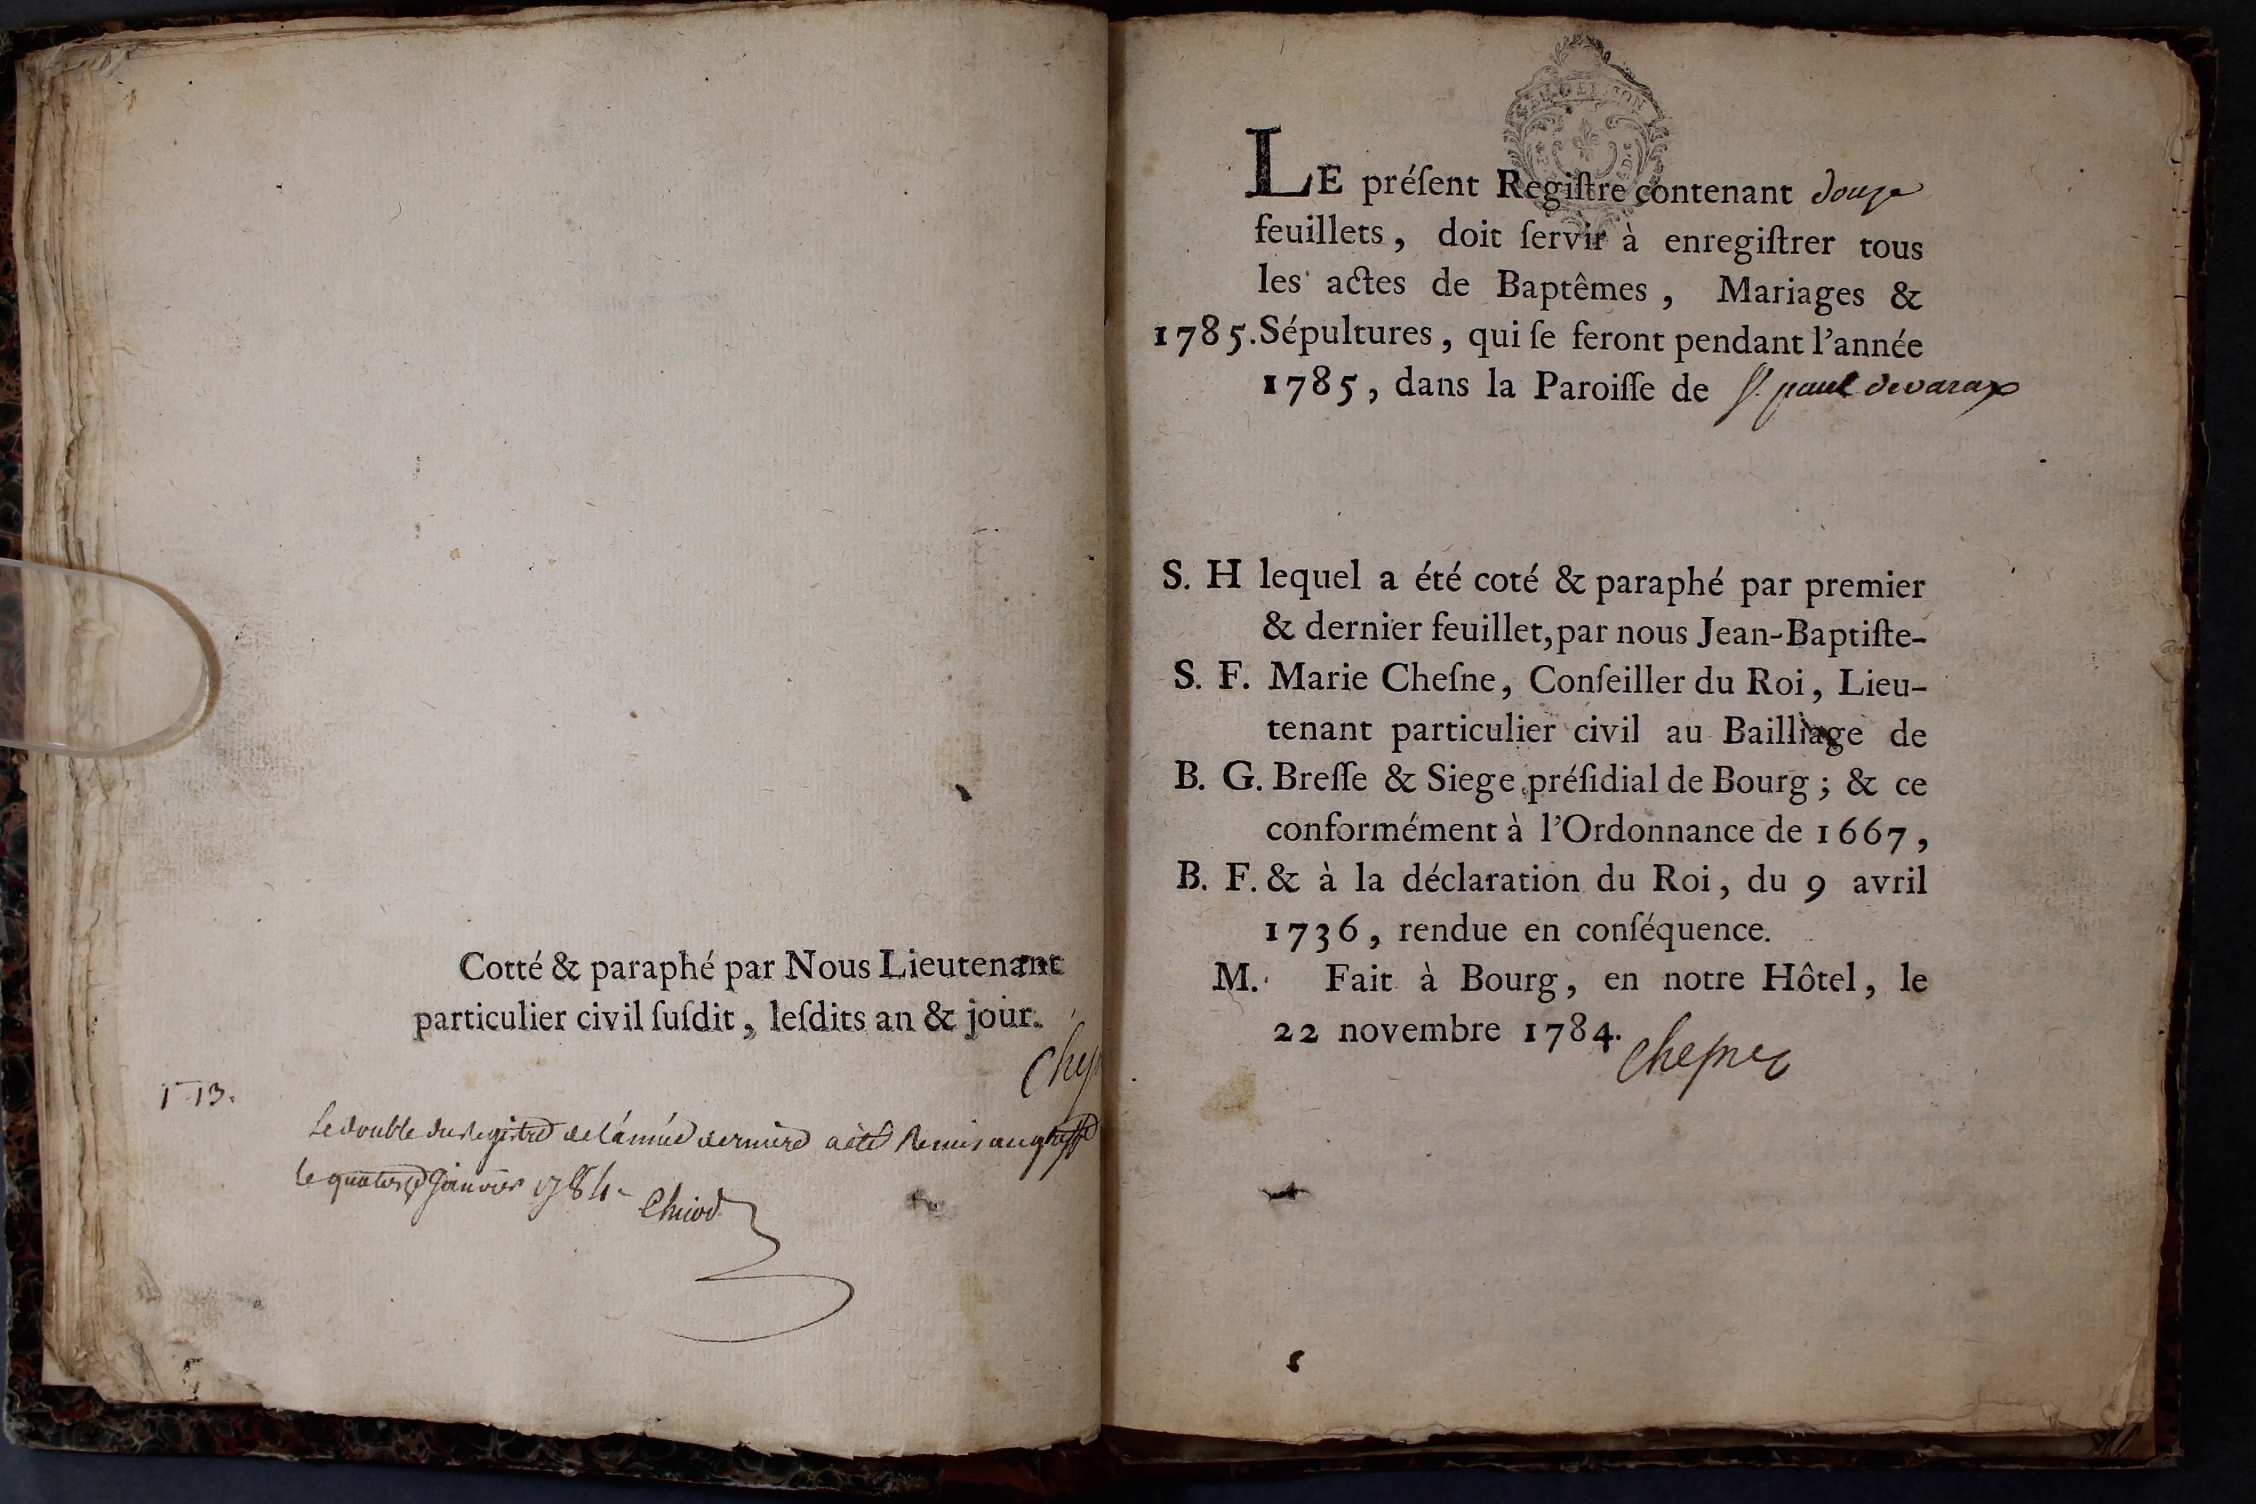 Cotté & paraphé par Nous Lieutenant
particulier civil ſuſdit, leſdits an & jour.
Le double du Registre de l'année derniere a été Remis au greffe
le quatorze Janvier 1784
LE préſent Regiſtre contenant douze
feuillets, doit ſervir à enregiſtrer tous
les actes de Baptêmes, Mariages &
1785. Sépultures, qui ſe feront pendant l'année
1785, dans la Paroiſſe de St. paul de varax
S. H lequel a été coté & paraphé par premier
& dernier feuillet, par nous Jean-Baptiſte-
S. F. Marie Cheſne, Conſeiller du Roi, Lieu-
tenant particulier civil au Bailliage de
B. G. Breſſe & Siege préſidial de Bourg ; & ce
conformément à l'Ordonnance de 1667,
B. F. & à la déclaration du Roi, du 9 avril
1736, rendue en conſéquence.
M. Fait à Bourg, en notre Hôtel, le
22 novembre 1784.
Cheſne